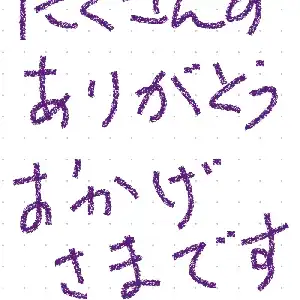 たくさんの
ありがとう
おかげ
さまです